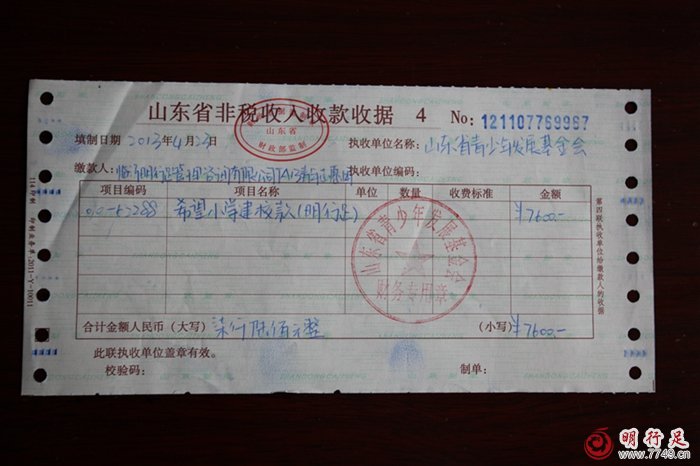 山东省非税收入收款收据 4 No: 121107769967
山东省
财政部监制
填制日期 2013年4月23日 执收单位名称: 山东省青少年发展基金会
缴款人: 执收单位编码:
项目编码 项目名称 单位 数量 收费标准 金额
希望小学建校款(明行足) ¥7600.-
山东省青少年发展基金会
财务专用章
合计金额人民币(大写) 柒仟陆佰元整 (小写) ¥7600.-
此联执收单位盖章有效。
校验码: 制单:
第四联执收单位给缴款人的收据
明行足
www.7749.cn